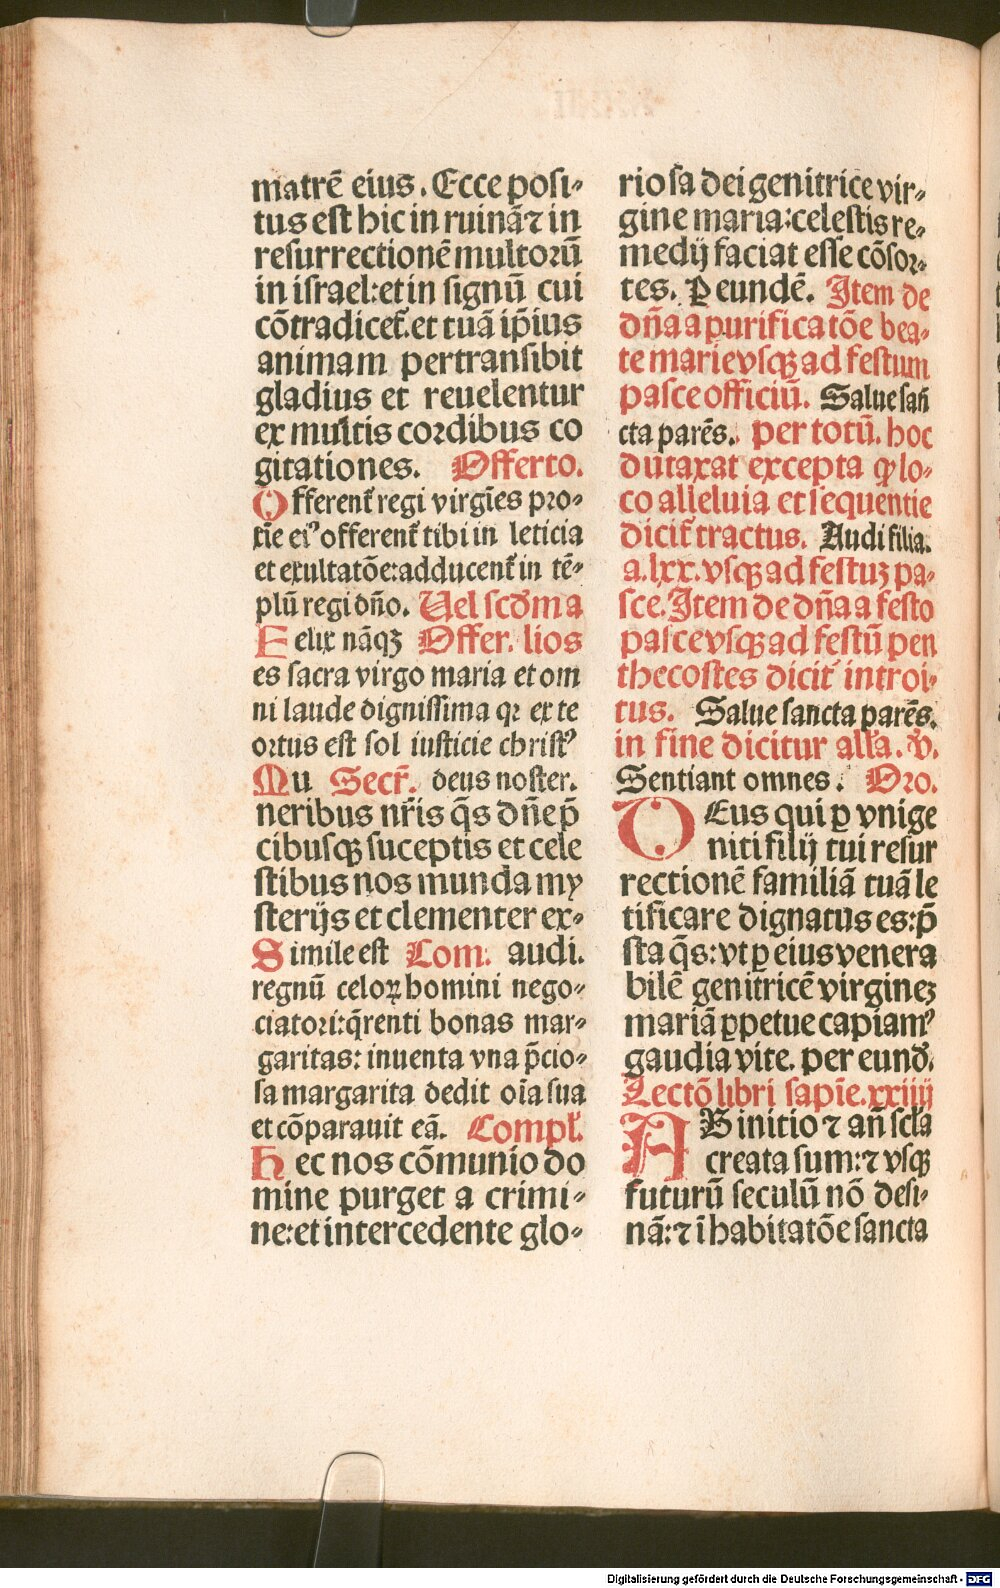 matrē eius. Ecce posi⸗
tus est hic in ruinā ⁊ in
resurrectionē multorū
in israel: et in signū cui
cōtradicet᷑. et tuā ip̄ius
animam pertransibit
gladius et reuelentur
ex multis cordibus co
gitationes. Offerto.
Offerent᷑ regi virgīes pro⸗
xīe eiꝰ offerent᷑ tibi in leticia
et exultatōe: adducent᷑ in tē⸗
plū regi dño. Uel scďm a
Felix nāqꝫ Offer. lios
es sacra virgo maria et om
ni laude dignissima qꝛ ex te
ortus est sol iusticie christꝰ
Mu Secr̄. deus noster.
neribus nr̄is q̄s dn̄e p̄
cibusqꝫ susceptis et cele
stibus nos munda my
sterijs et clementer ex⸗
Simile est Com. audi.
regnū celoꝝ homini nego⸗
ciatori: q̄renti bonas mar⸗
garitas: inuenta vna p̄cio⸗
sa margarita dedit oīa sua
et cōparauit eā. Compł.
Hec nos cōmunio do
mine purget a crimi⸗
ne: et intercedente glo⸗
riosa dei genitrice vir⸗
gine maria: celestis re⸗
medij faciat esse cōsor⸗
tes. P eundē. Item de
dn̄a a purificatōe bea⸗
te marie vsqꝫ ad festum
pasce officiū. Salue san̄
cta parēs. per totū. hoc
dutaxat excepta ꝙ lo⸗
co alleluia et sequentie
dicit᷑ tractus. Audi filia.
a. lxx. vsqꝫ ad festuꝫ pa⸗
sce. Item de dn̄a a festo
pasce vsqꝫ ad festū pen
thecostes dicit᷑ introi⸗
tus. Salue sancta parēs.
in fine dicitur alła. V̇.
Sentiant omnes. Oro.
DEus qui ꝑ vnige
niti filij tui resur
rectionē familiā tuā le
tificare dignatus es: p̄
sta q̄s: vt ꝑ eius venera
bilē genitricē virgineꝫ
mariā ꝑpetue capiamꝰ
gaudia vite. per eunď.
Lectō libri sapīe. xxiiij
AB initio ⁊ an̄ scła
creata sum: ⁊ vsqꝫ
futurū seculū nō desi⸗
nā: ⁊ ī habitatōe sancta
Digitalisierung gefördert durch die Deutsche Forschungsgemeinschaft - DFG